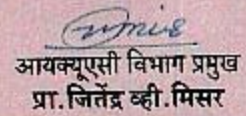 आयक्यूएसी विभाग प्रमुख
प्रा.जितेंद्र व्ही.मिसर